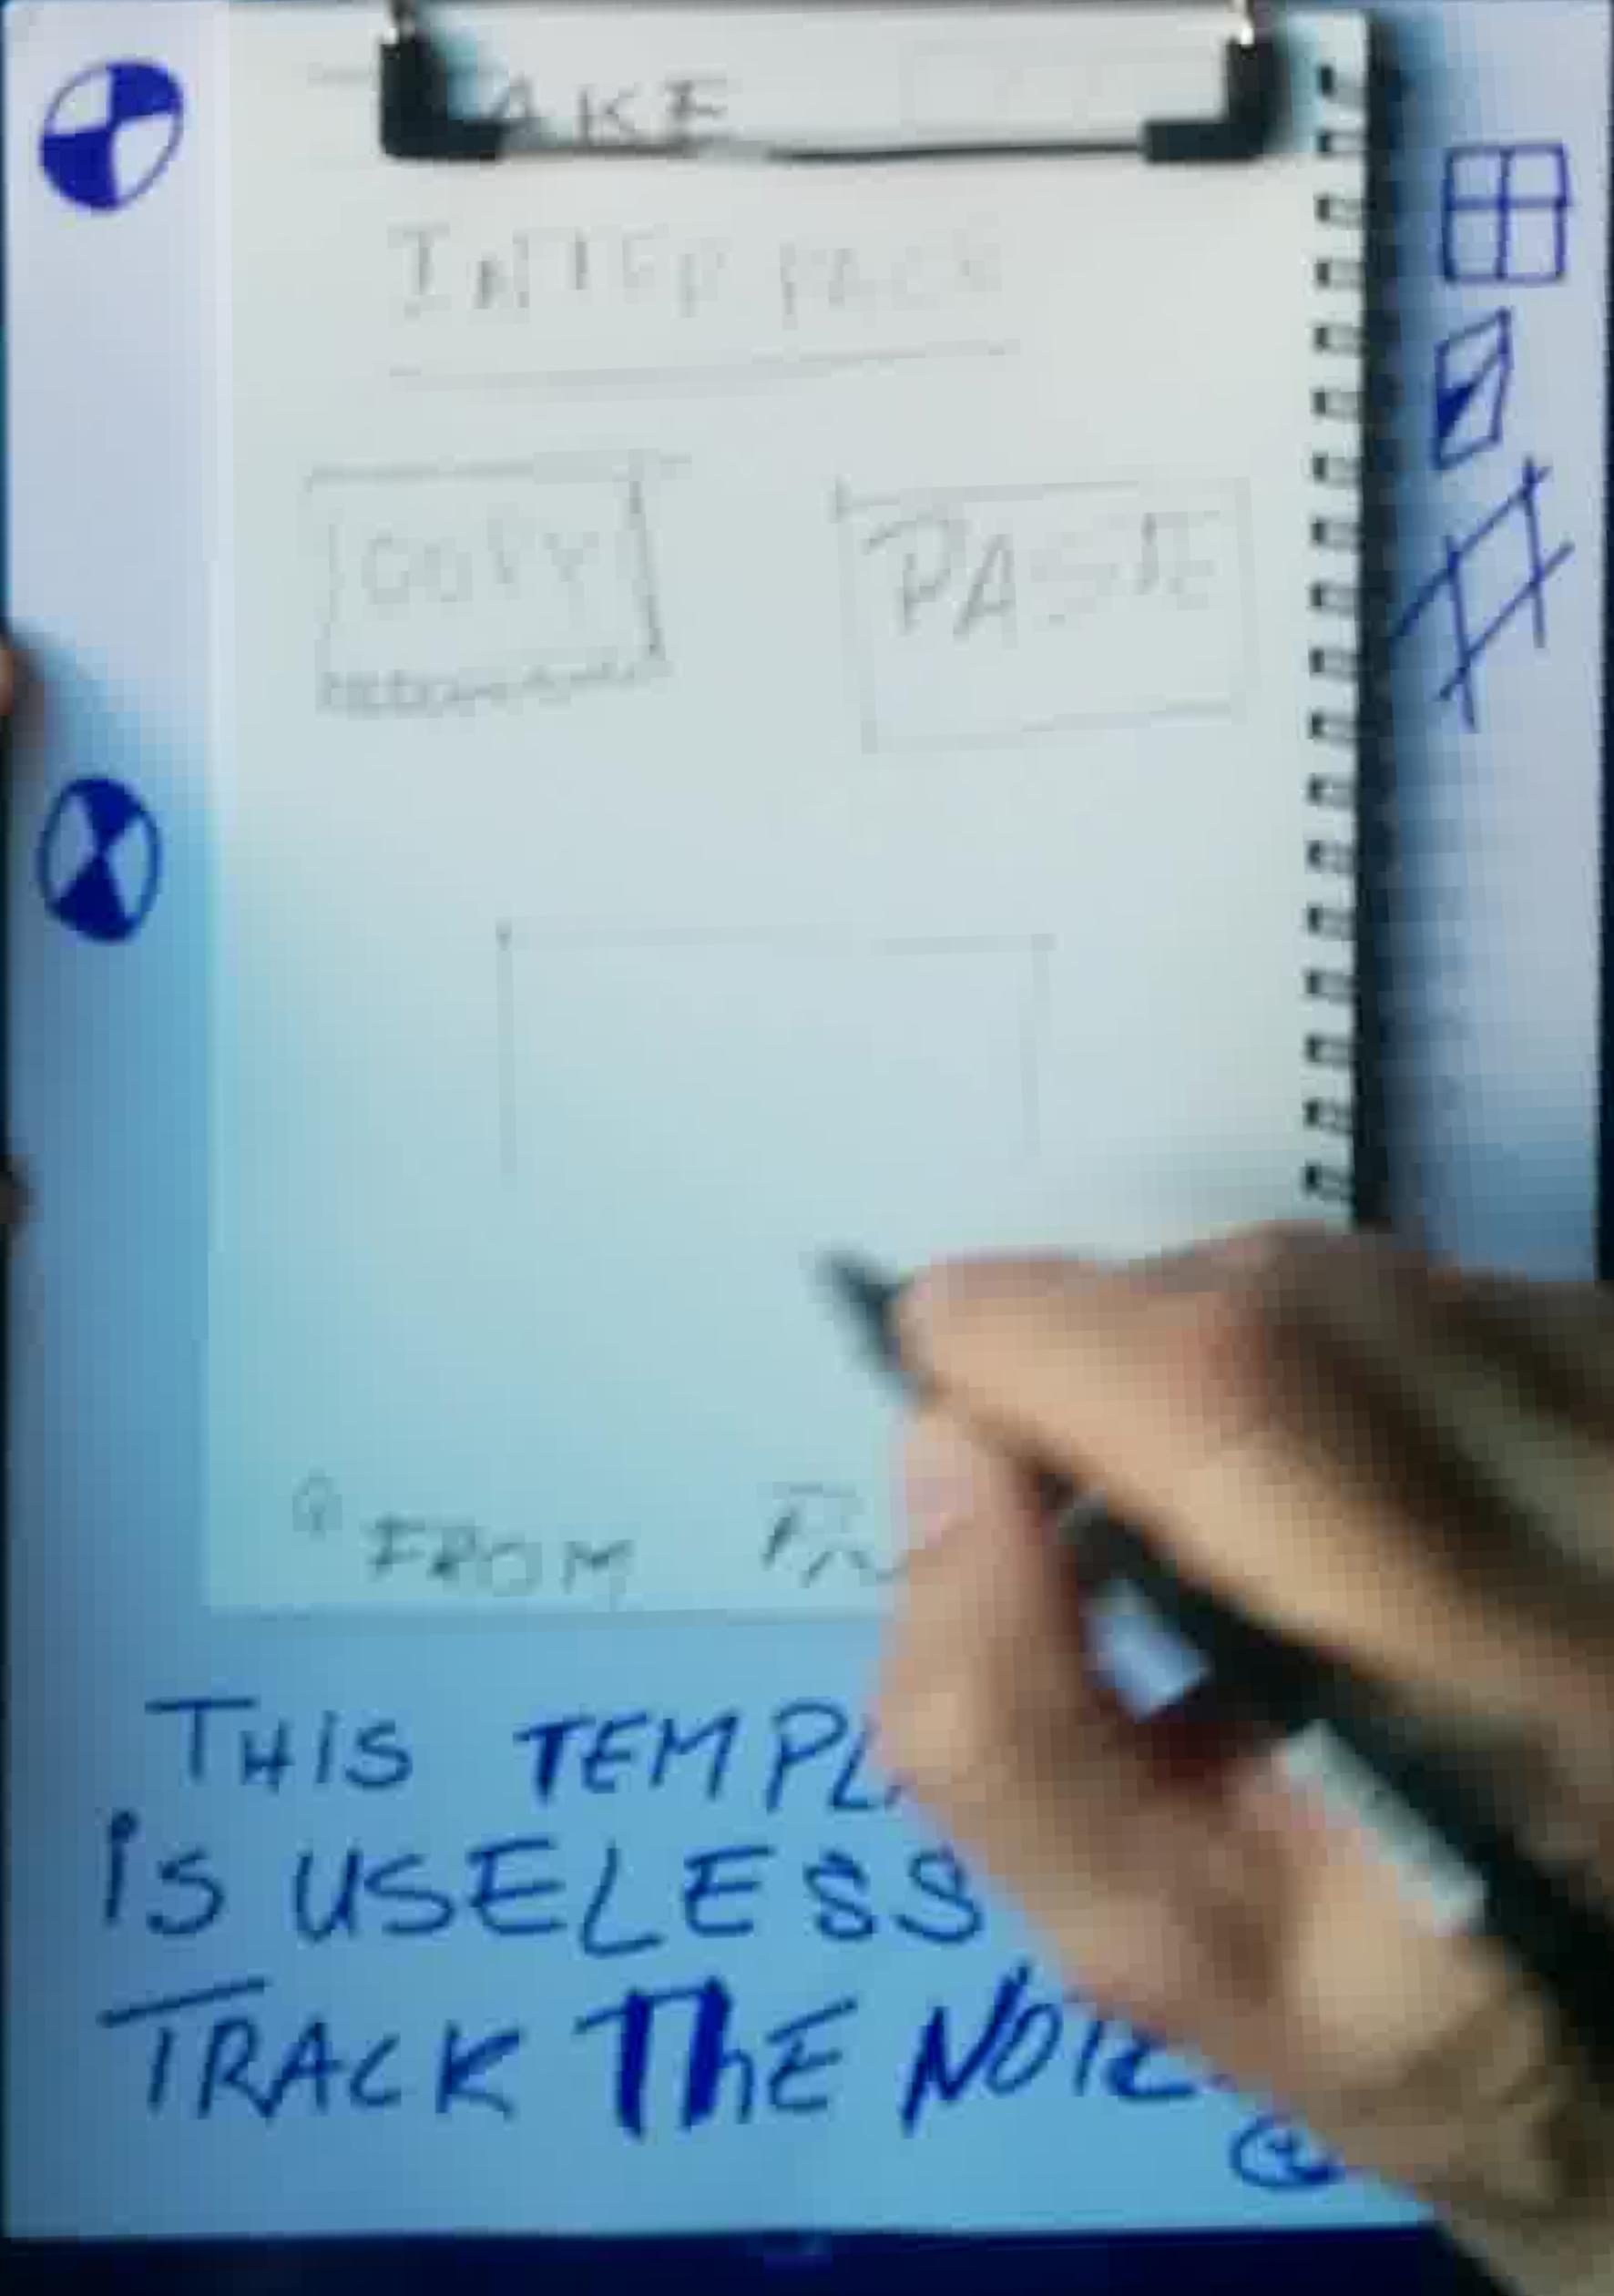 AKE
INTERFACE
COPY PASTE
FROM
THiS TEMPL
iS USELESS
TRACK ThE